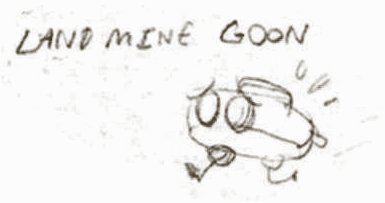 LAND MINE GOON